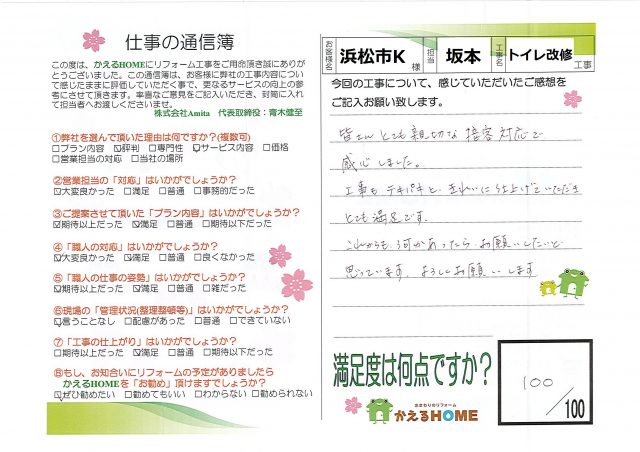 仕事の通信簿
この度は、かえるHOMEにリフォーム工事をご用命頂き誠にありが
とうございました。この通信簿は、お客様に弊社の工事内容につい
て感じたままに評価していただく事で、更なるサービスの向上の参
考にさせて頂きます。率直なご意見をご記入いただき、封筒に入れ
て担当者へお渡しくださいませ。
株式会社Amita 代表取締役:青木健至
①弊社を選んで頂いた理由は何ですか?(複数可)
□プラン内容 ☑評判 □専門性 ☑サービス内容 □価格
□営業担当の対応 □当社の場所
②営業担当の「対応」はいかがでしょうか?
☑大変良かった □満足 □普通 □事務的だった
③ご提案させて頂いた「プラン内容」はいかがでしょうか?
☑期待以上だった ☑満足 □普通 □期待以下だった
④「職人の対応」はいかがでしょうか?
☑大変良かった ☑満足 □普通 □良くなかった
⑤「職人の仕事の姿勢」はいかがでしょうか?
☑期待以上だった ☑満足 □普通 □雑だった
⑥現場の「管理状況(整理整頓等)」はいかがでしょうか?
☑言うことなし □配慮があった □普通 □できていない
⑦「工事の仕上がり」はいかがでしょうか?
□期待以上だった ☑満足 □普通 □期待以下だった
⑧もし、お知合いにリフォームの予定がありましたら
かえるHOMEを「お勧め」頂けますでしょうか?
☑ぜひ勧めたい □勧めてもいい □わからない □勧められない
お客様名 浜松市K 様 担当 坂本 工事名 トイレ改修 工事
今回の工事について、感じていただいたご感想を
ご記入お願い致します。
皆さんとても親切な接客対応で
感心しました。
工事もテキパキと、きれいに仕上げていただき
とても満足です。
これからも何かあったらお願いしたいと
思っています。よろしくお願いします
満足度は何点ですか?
100
/100
水まわりのリフォーム
かえるHOME